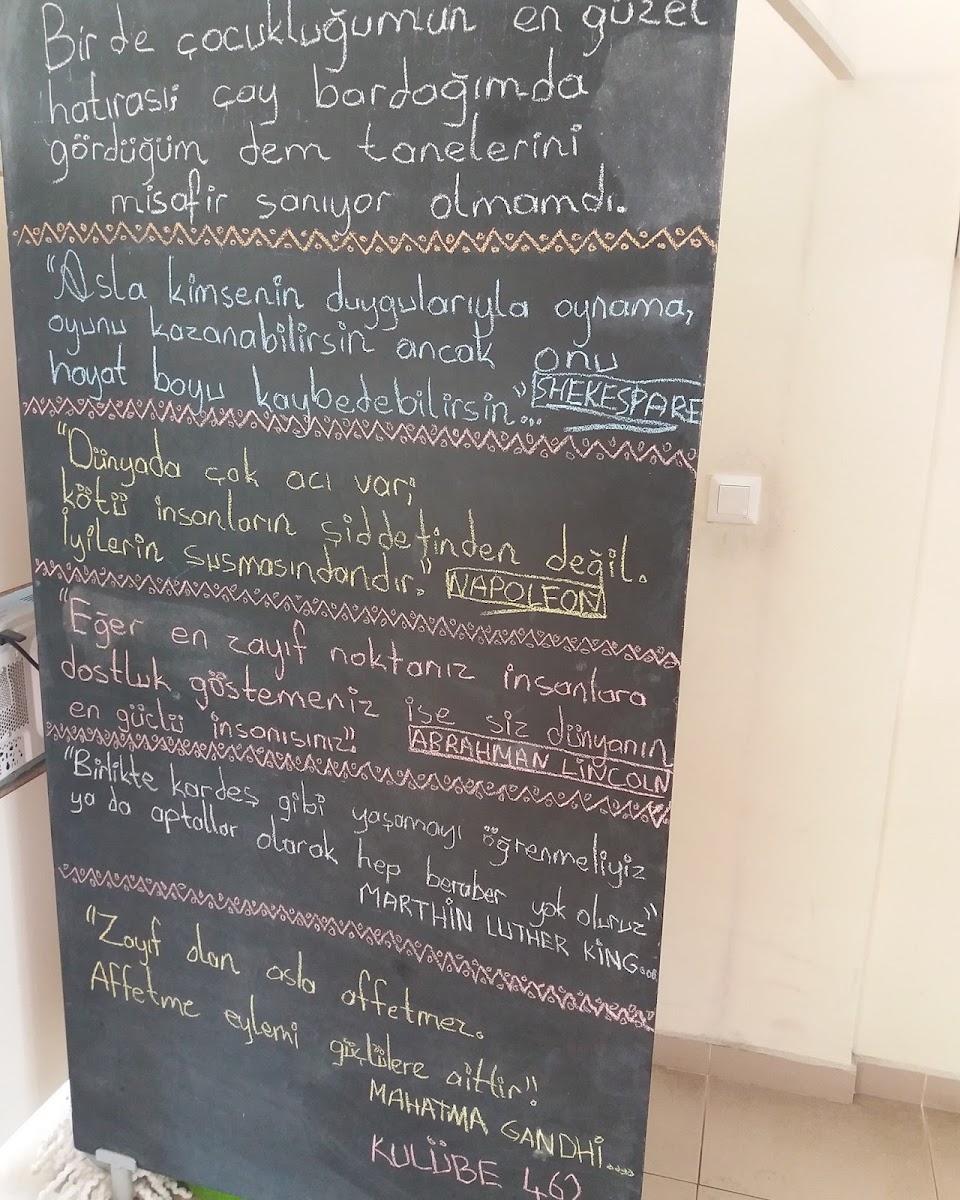 Bir de çocukluğumun en güzel
hatırası; çay bardağımda
gördüğüm dem tanelerini
misafir sanıyor olmamdı.
"Asla kimsenin duygularıyla oynama,
oyunu kazanabilirsin ancak onu
hayat boyu kaybedebilirsin..."
SHEKESPARE
"Dünyada çok acı var;
kötü insanların şiddetinden değil.
İyilerin susmasındandır."
NAPOLEON
"Eğer en zayıf noktanız insanlara
dostluk göstemeniz ise siz dünyanın
en güçlü insanısınız".
ABRAHMAN LİNCOLN
"Birlikte kardeş gibi yaşamayı öğrenmeliyiz
ya da aptallar olarak hep beraber yok oluruz"
MARTHİN LUTHER KİNG...
"Zayıf olan asla affetmez.
Affetme eylemi güçlülere aittir"
MAHATMA GANDHİ....
KULÜBE